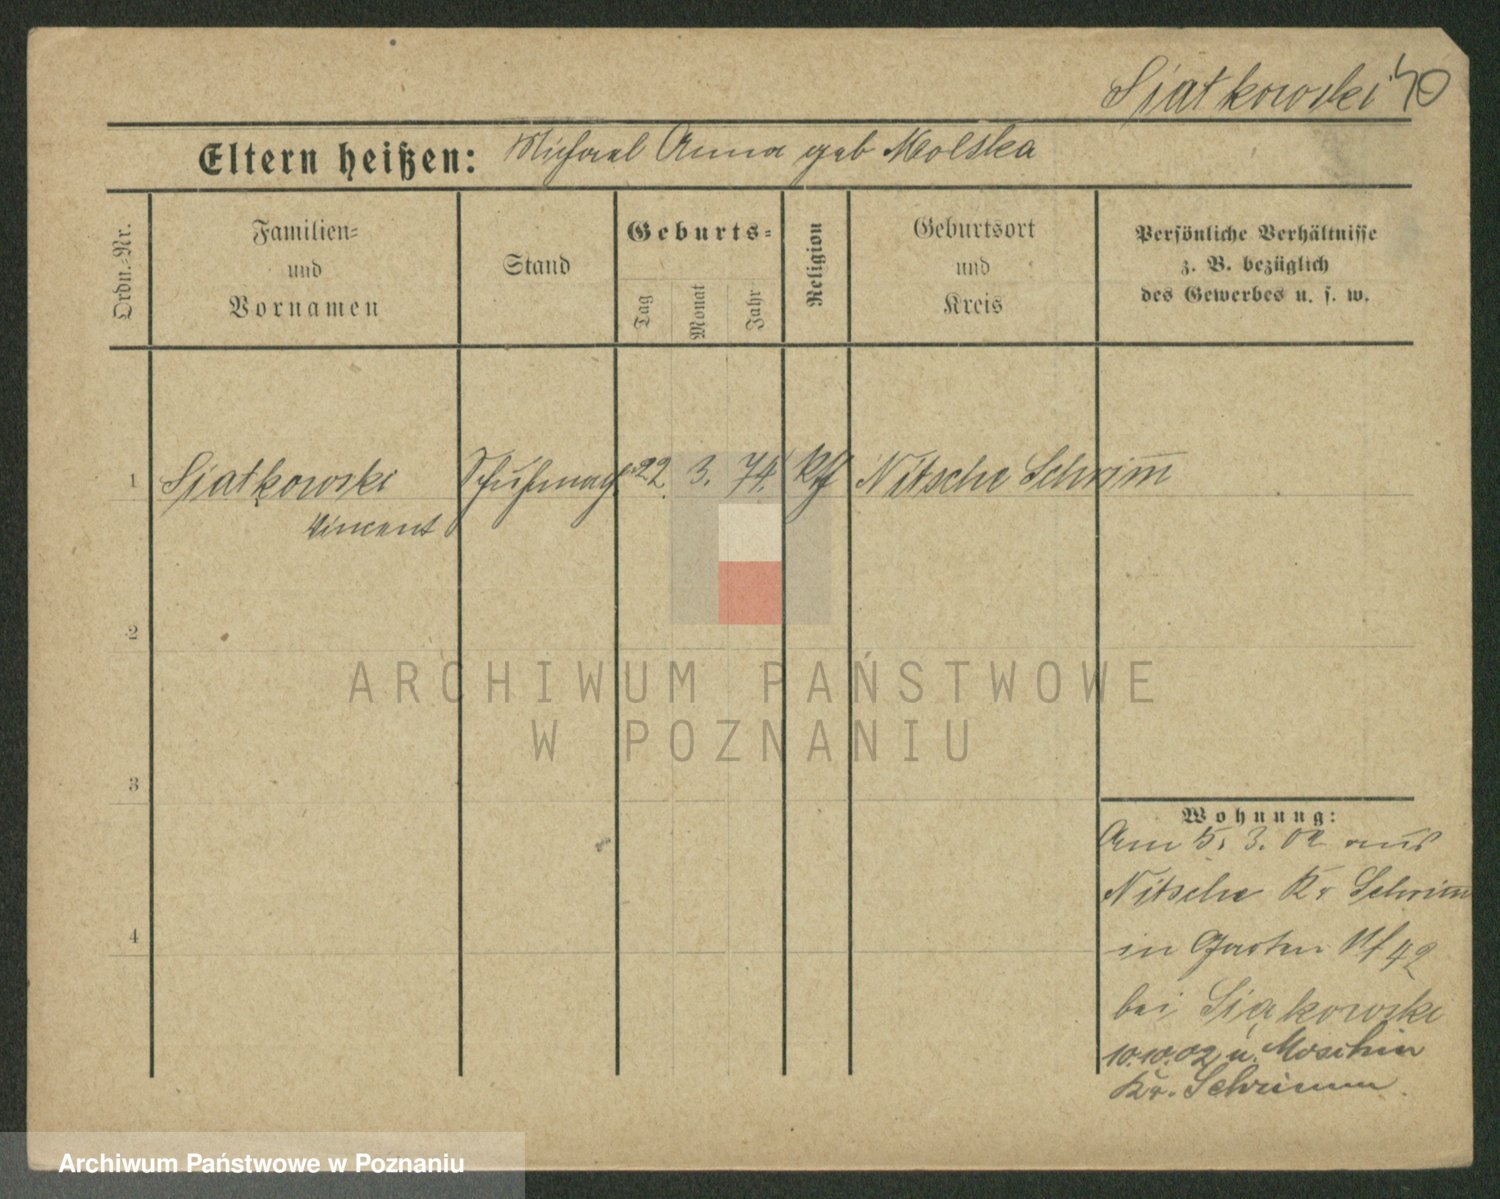 Sjatkowski 40
Eltern heißen: Michael Anna geb Molska
Ordn.-Nr.
Familien-
und
Vornamen
Stand
Geburts-
Tag
Monat
Jahr
Religion
Geburtsort
und
Kreis
Persönliche Verhältnisse
z. B. bezüglich
des Gewerbes u. s. w.
1 Sjatkowski Schuhmach 22. 3. 74. kth Nitsche Schrim̅
Vincent
2
ARCHIWUM PAŃSTWOWE
W POZNANIU
3
Wohnung:
Am 5. 3. 02 aus
Nitsche Kr Schrim̅
4
in 42
bei Siąkowski
10.10.02 n. Moschin
Kr. Schrimm.
Archiwum Państwowe w Poznaniu